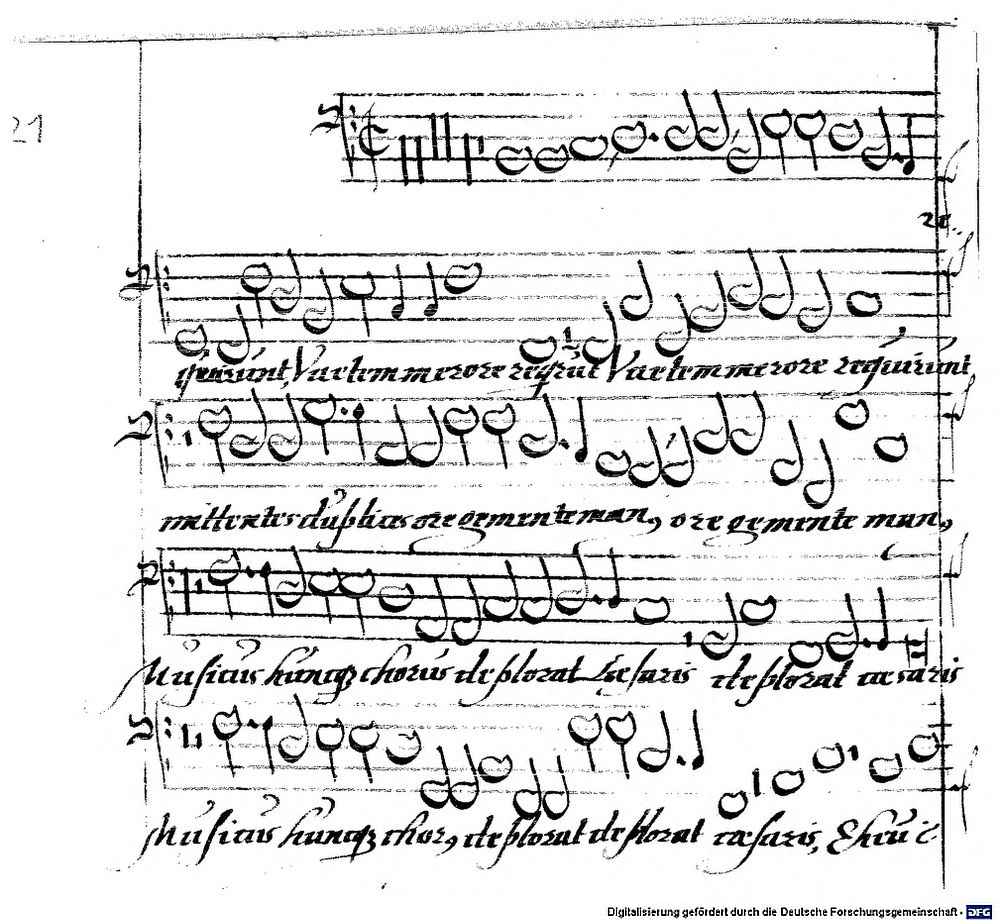 21
quirunt, Vae tem merore requirut Vae tem merore requirunt,
mittentes duplices ore gemente man, ore gemente man,
Musicus hunq chorus deplorat Caesaris deplorat caesaris
Musicus hunq chor, deplorat deplorat caesaris, Eheu
Digitalisierung gefördert durch die Deutsche Forschungsgemeinschaft - DFG